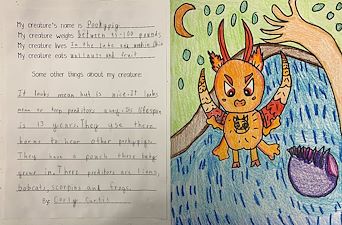 My creature's name is Porkypig
My creature weighs between 95-100 pounds
My creature lives in the
My creature eats walnuts and fruit
Some other things about my creature:
It looks mean but is nice. It looks
mean to keep preditors away. Its lifespan
is 13 years. They use there
horns to hear other porkypigs.
They have a pouch there baby
grows in. Three preditors are lions,
bobcats, scorpins and frogs.
By: Carly Curtis